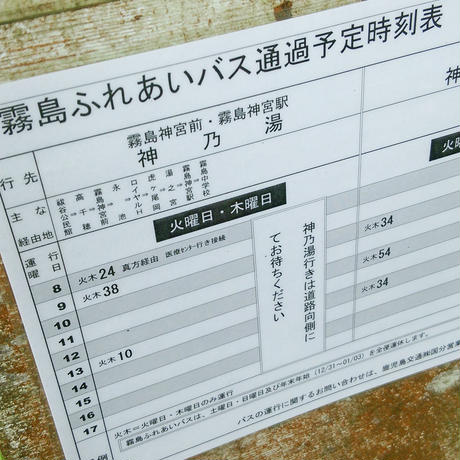 霧島ふれあいバス通過予定時刻表
行先
霧島神宮前・霧島神宮駅
神乃湯
神
主な経由地
霧島中学校
湯之宮
虎ヶ岡
ロイヤルH
永池
霧島神宮前
高千穂
祓谷公民館
運行曜日
火曜日・木曜日
火曜
8 火木24 真方経由 医療センター行き接続
9 火木38
10
11
12 火木10
13
14
15
16
17
神乃湯行きは道路向側に
てお待ちください
火木34
火木54
火木34
火木=火曜日・木曜日のみ運行
霧島ふれあいバスは、土曜日・日曜日及び年末年始(12/31~01/03)を全便運休します。
バスの運行に関するお問い合わせは、鹿児島交通㈱国分営業
例